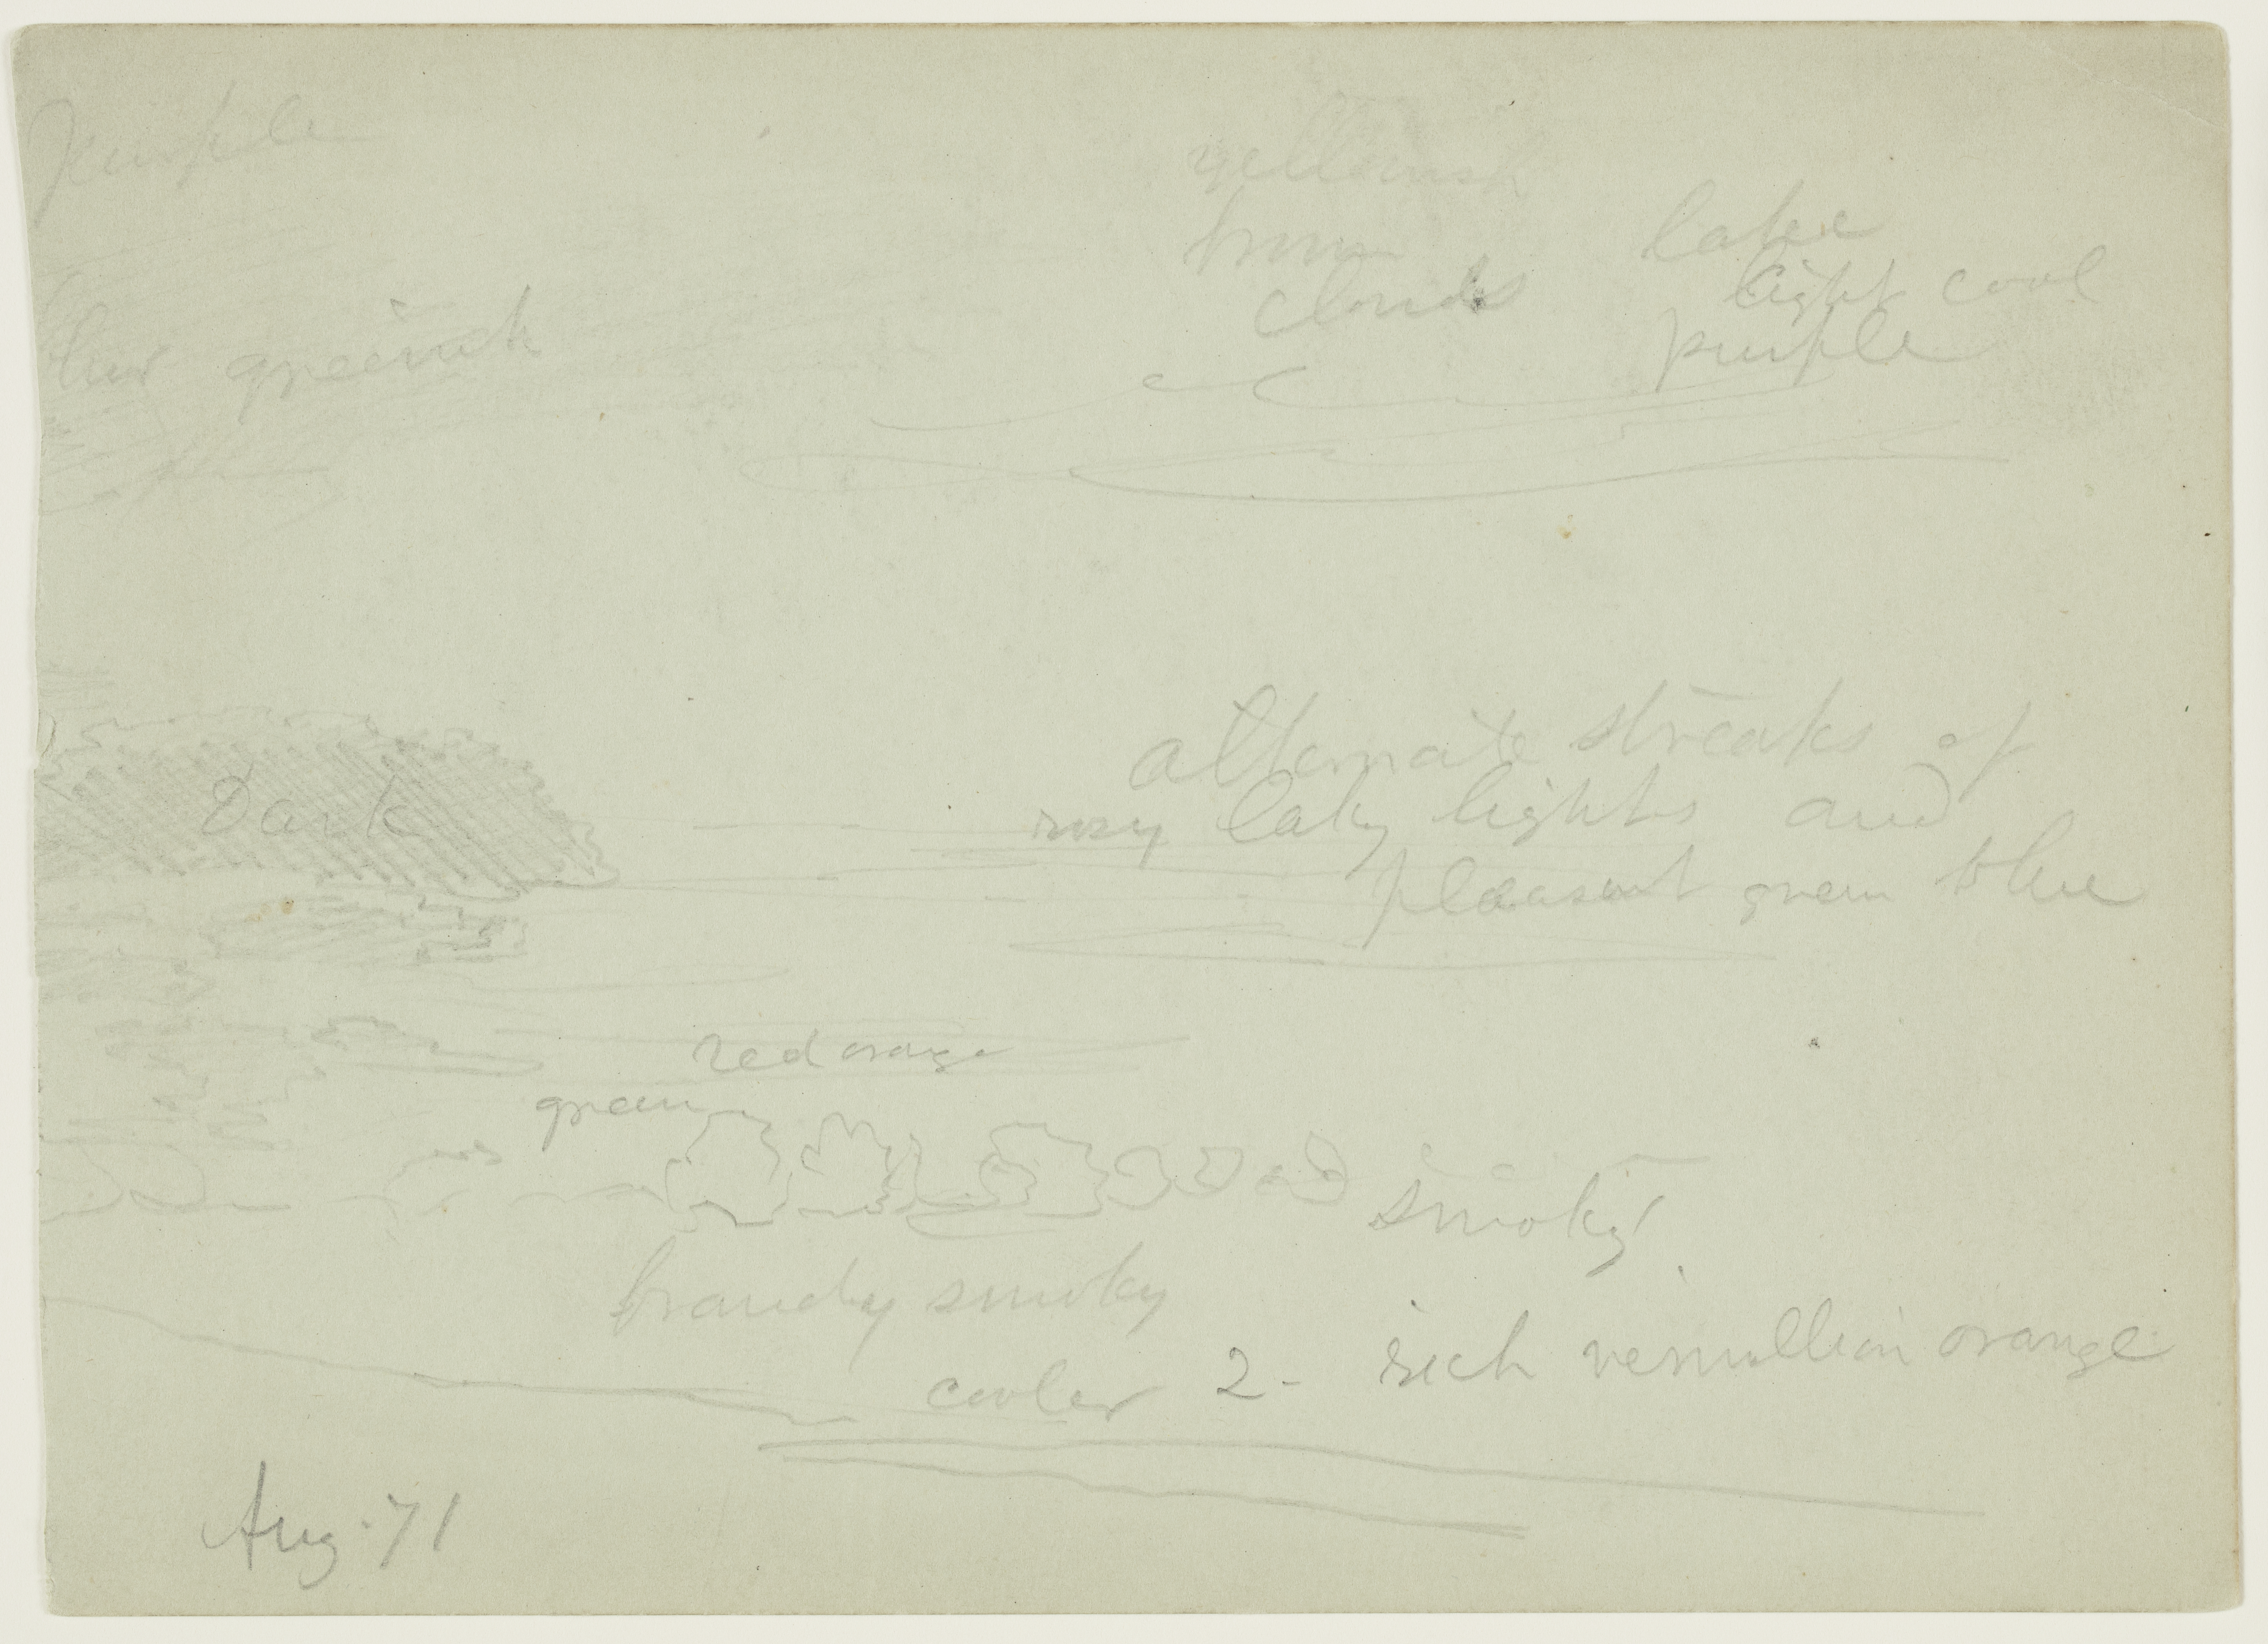 purple
yellowish
brown
clouds
lake
light cool
purple
blue greenish
alternate streaks of
rosy laky lights and
pleasant green blue
Dark
red orange
green
smoky
brandy smoky
cooler 2- rich vermillion orange
Aug. 71